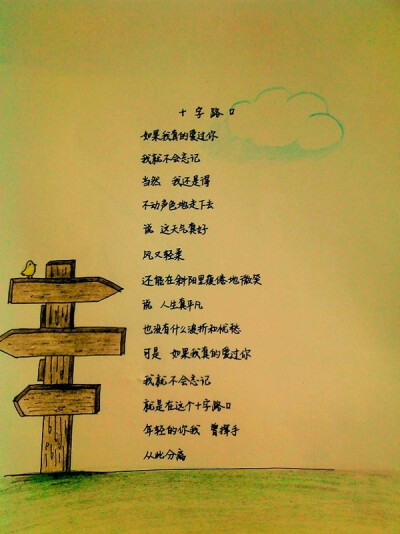 十字路口
如果我真的爱过你
我就不会忘记
当然 我还是得
不动声色地走下去
说 这天气真好
风又轻柔
还能在斜阳里疲倦地微笑
说 人生真平凡
也没有什么波折和忧愁
可是 如果我真的爱过你
我就不会忘记
就是在这个十字路口
年轻的你我 曾挥手
从此分离